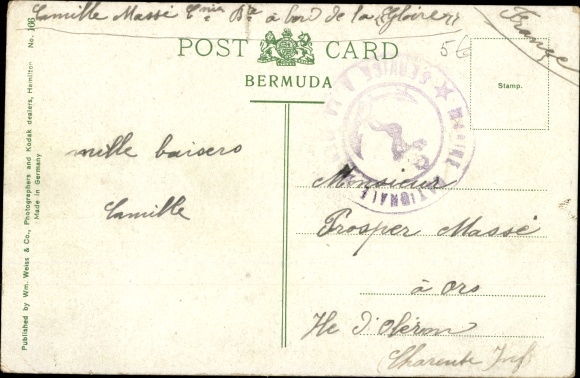 Camille Massé à bord de la "Gloire"
France
No. 166
POST CARD
56
BERMUDA
Stamp.
MARINE NATIONALE ★ SERVICE À LA MER ★
mille baisers
Camille
Monsieur
Prosper Massé
à Ors
Ile d'Oléron
Charente Inf
Published by Wm. Weiss & Co., Photographers and Kodak dealers, Hamilton
Made in Germany